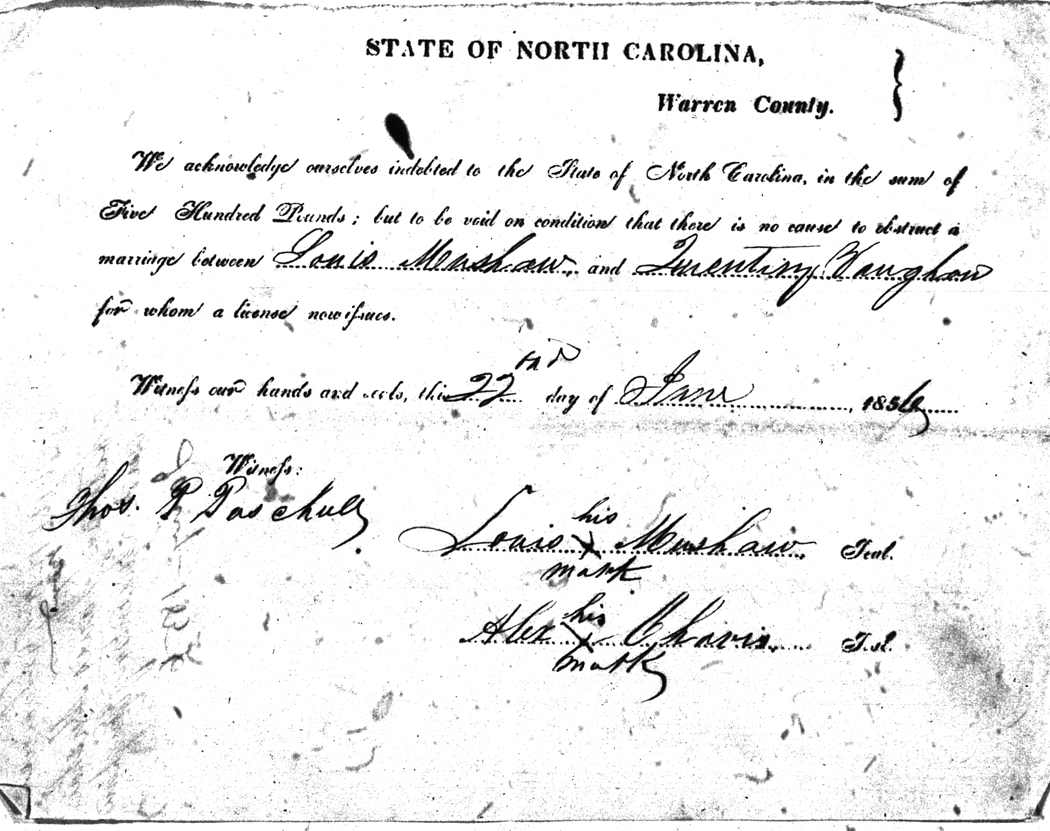 STATE OF NORTH CAROLINA,
Warren County.
We acknowledge ourselves indebted to the State of North Carolina, in the sum of
Five Hundred Pounds; but to be void on condition that there is no cause to obstruct a
marriage between Louis Mushaw, and Quentiny Vaughan
for whom a license now issues.
Witness our hands and seals, this 22nd day of June, 1856
Witness:
Thos. P Paschall
Louis his X mark Mushaw, Seal.
Alex his X mark Chavis, Seal.